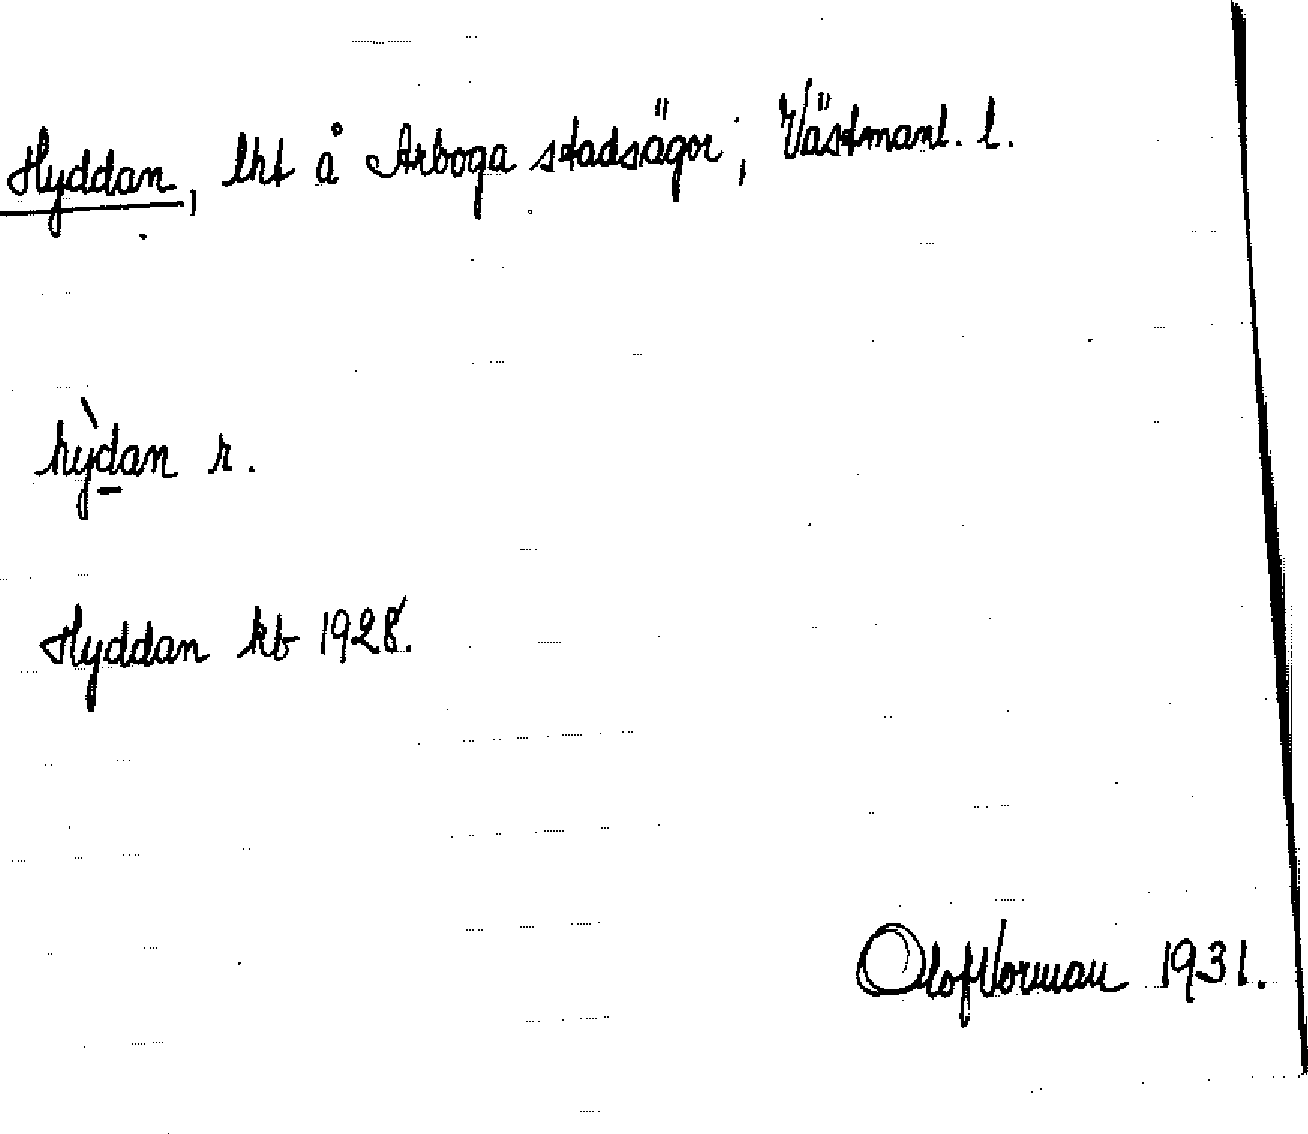 Hyddan, lht å Arboga stadsägor; Västmanl. l.
hỳdan r.
Hyddan kb 1928.
Olof Norman 1931.